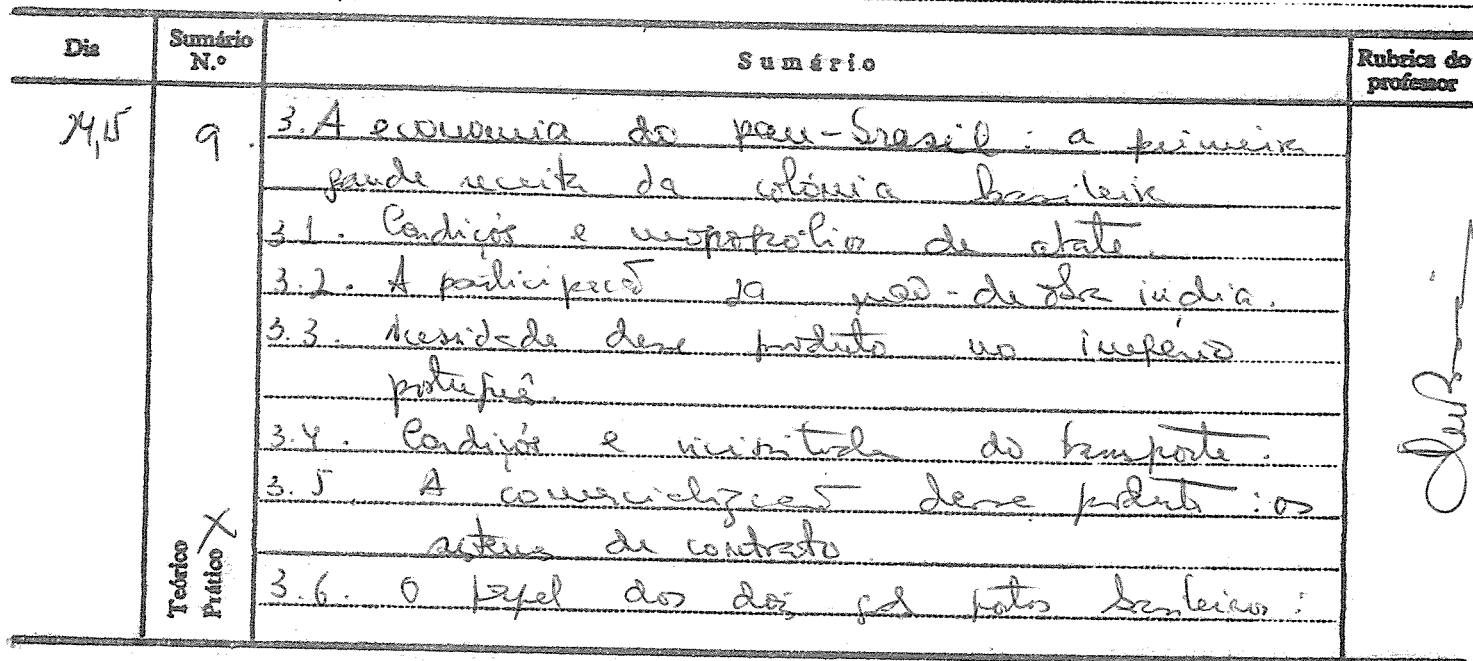 Dia Sumário N.º Sumário Rubrica do professor
9. 3. A economia do pau-brasil: a primeira
grande receita da colónia brasileira
3.1. Condições e monopólios de abate.
3.2. A participação da mão-de-obra índia.
3.3. Necessidade desse produto no império
português.
3.4. Condições e vicissitudes do transporte.
3.5. A comercialização desse produto: os
sistemas de contrato.
3.6. O papel dos dois portos brasileiros:
Teórico
Prático X